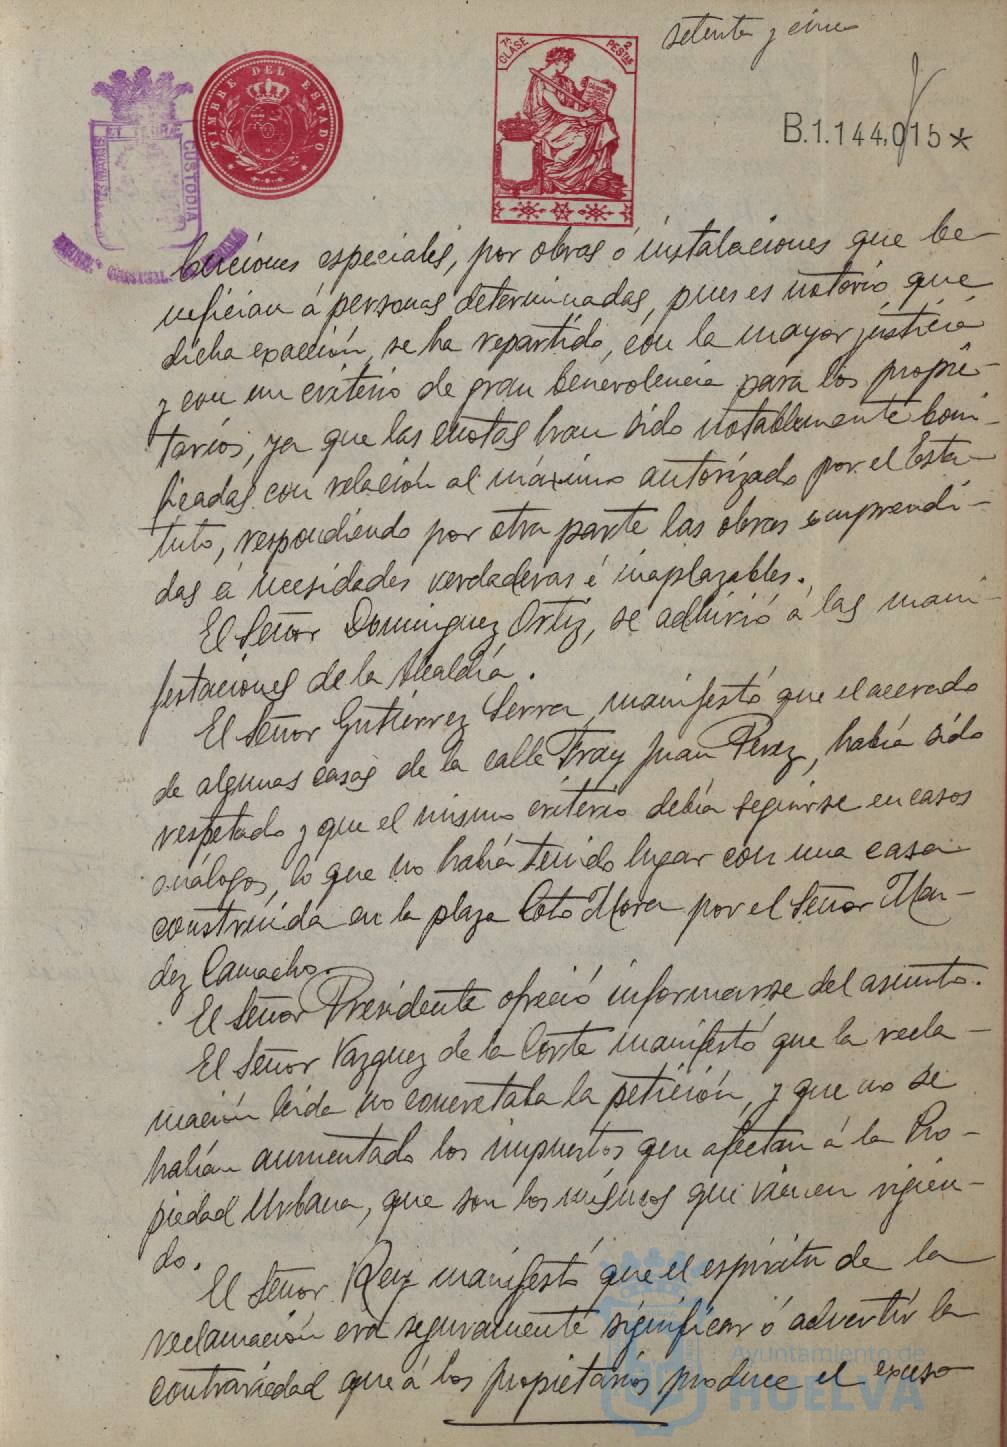 setenta y cinco
7ª CLASE
2 PESTAS
TIMBRE DEL ESTADO
CUSTODIA
B.1.144,015*
buciones especiales, por obras ó instalaciones que be-
nefician á personas determinadas, pues es notorio que
dicha exacción, se ha repartido, con la mayor justicia
y con un criterio de gran benevolencia para los propie-
tarios, ya que las cuotas han sido notablemente boni-
ficadas con relación al máximo autorizado por el Esta-
tuto, respondiendo por otra parte las obras emprendi-
das á necesidades verdaderas é inaplazables.
El Señor Dominguez Ortiz, se adhirió á las mani-
festaciones de la Alcaldía.
El Señor Gutiérrez Serra, manifestó que el acerado
de algunas casas de la calle Fray Juan Perez, había sido
respetado y que el mismo criterio debía seguirse en casos
análogos, lo que no había tenido lugar con una casa
construida en la plaza Coto Mora por el Señor Man-
dez Camacho.
El Señor Presidente ofreció informarse del asunto.
El Señor Vazquez de la Corte manifestó que la recla-
mación leida no concretaba la petición, y que no se
habían aumentado los impuestos que afectan á la Pro-
piedad Urbana, que son los mismos que vienen rigien-
do.
El Señor Rey manifestó que el espíritu de la
reclamación era seguramente significar ó advertir la
contrariedad que á los propietarios produce el exceso
Ayuntamiento de
HUELVA